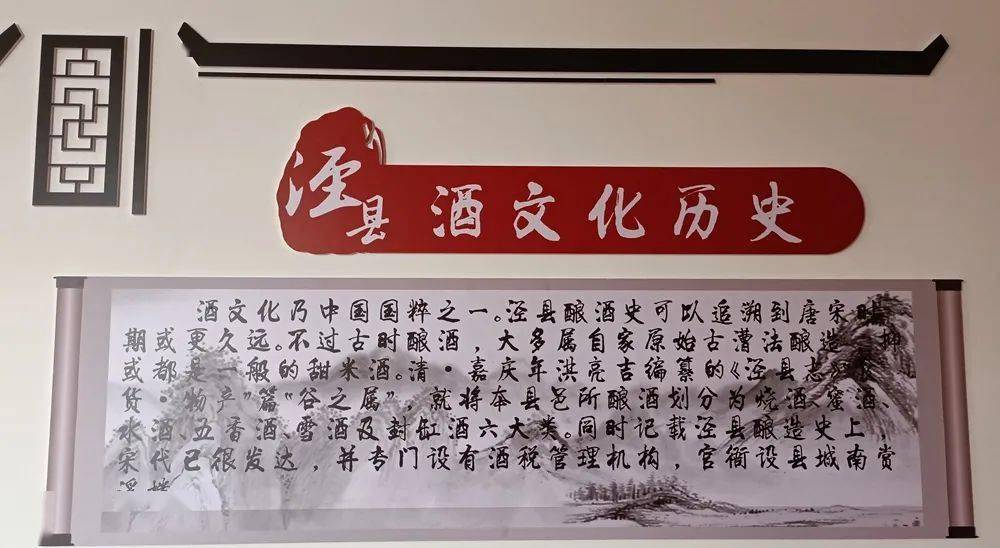 泾县 酒文化历史
酒文化乃中国国粹之一。泾县酿酒史可以追溯到唐宋时
期或更久远。不过古时酿酒，大多属自家原始古漕法酿造，
或都是一般的甜米酒。清·嘉庆年洪亮吉编纂的《泾县志》
货·物产”篇“谷之属”，就将本县邑所酿酒划分为烧酒、蜜酒、
水酒、五香酒、雪酒及封缸酒六大类。同时记载泾县酿造史上，
宋代已很发达，并专门设有酒税管理机构，官衙设县城南赏